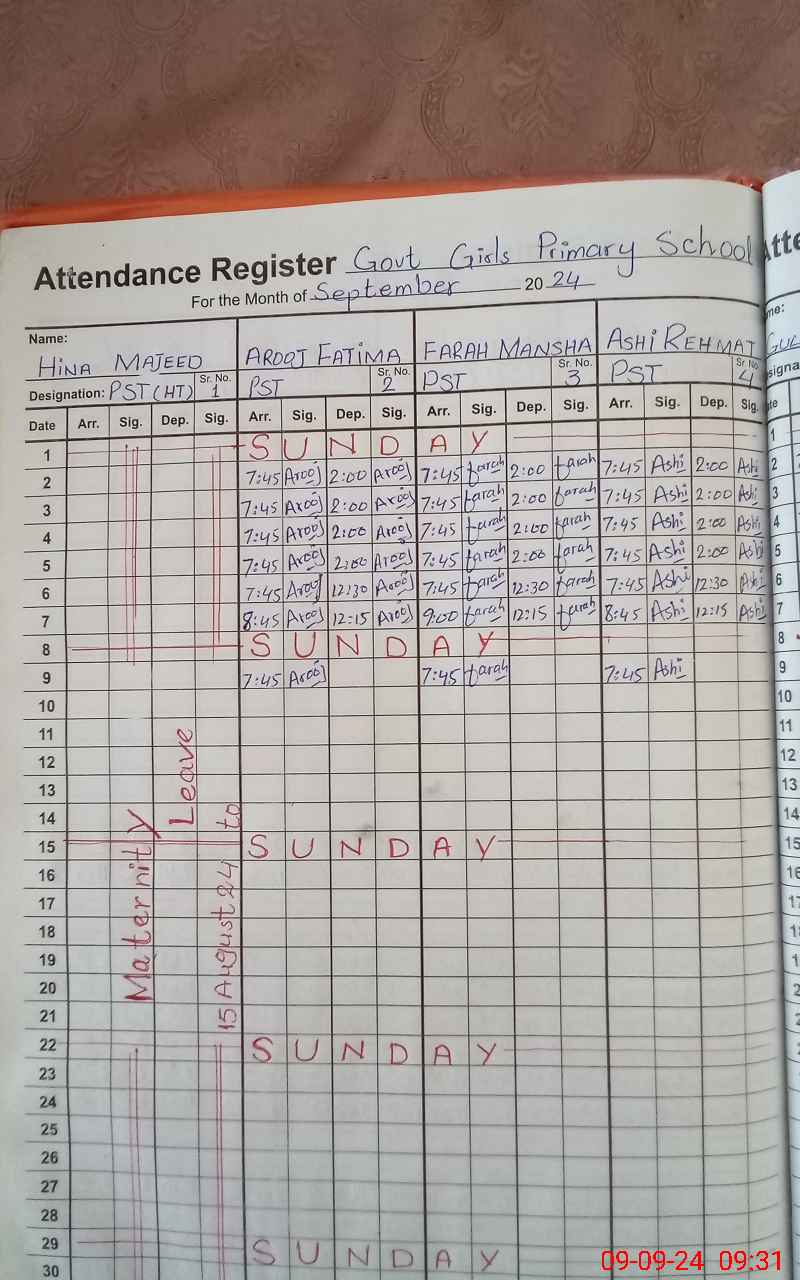 Attendance Register Govt Girls Primary School
For the Month of September 2024
Name:
HINA MAJEED AROOJ FATIMA FARAH MANSHA ASHI REHMAT
Designation: PST (HT) Sr. No. 1 PST Sr. No. 2 PST Sr. No. 3 PST Sr. No. 4
Date Arr. Sig. Dep. Sig. Arr. Sig. Dep. Sig. Arr. Sig. Dep. Sig. Arr. Sig. Dep. Sig.
1 SUNDAY 1
2 7:45 Arooj 2:00 Arooj 7:45 farah 2:00 farah 7:45 Ashi 2:00 Ashi 2
3 7:45 Arooj 2:00 Arooj 7:45 farah 2:00 farah 7:45 Ashi 2:00 Ashi 3
4 7:45 Arooj 2:00 Arooj 7:45 farah 2:00 farah 7:45 Ashi 2:00 Ashi 4
5 7:45 Arooj 2:00 Arooj 7:45 farah 2:00 farah 7:45 Ashi 2:00 Ashi 5
6 7:45 Arooj 12:30 Arooj 7:45 farah 12:30 farah 7:45 Ashi 12:30 Ashi 6
7 8:45 Arooj 12:15 Arooj 9:00 farah 12:15 farah 8:45 Ashi 12:15 Ashi 7
8 SUNDAY 8
9 7:45 Arooj 7:45 farah 7:45 Ashi 9
10 10
11 11
12 12
13 13
14 14
15 SUNDAY 15
16
17
18
19
20
21
22 SUNDAY
23
24
25
26
27
28
29 SUNDAY
30
Maternity
Leave
15 August 24 to
09-09-24 09:31